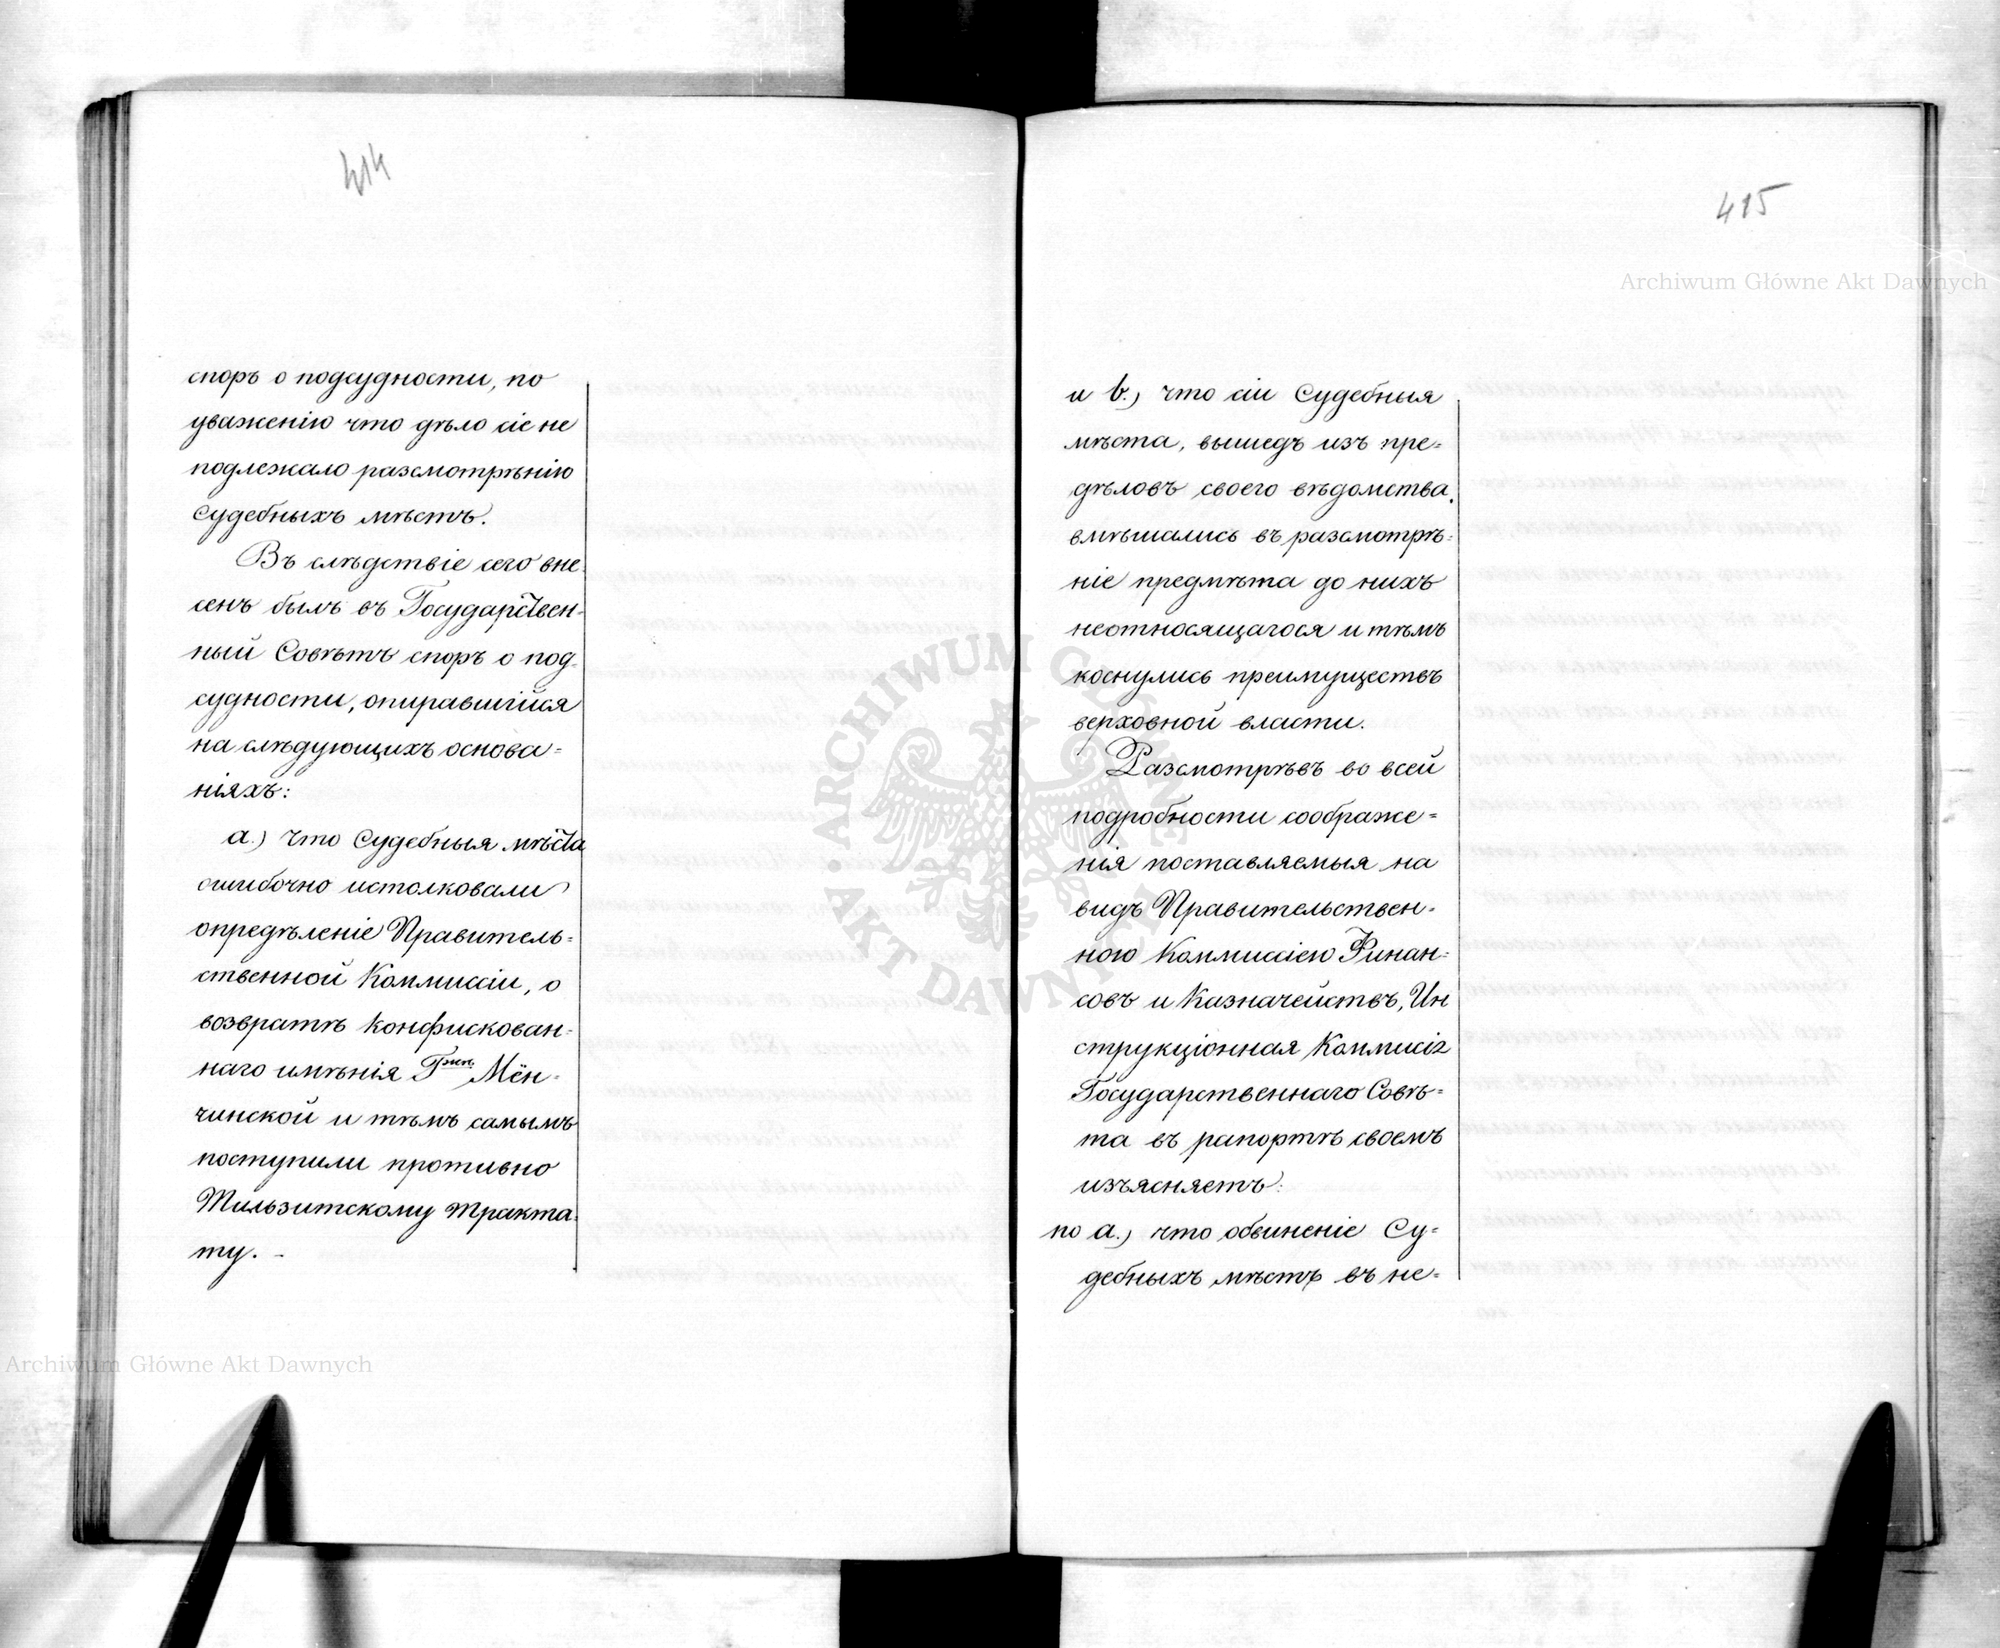 414
споръ о подсудности, по
уваженію что дѣло сіе не
подлежало разсмотрѣнію
Судебныхъ мѣстъ.
Въ слѣдствіе сего вне-
сенъ былъ въ Государствен-
ный Совѣтъ споръ о под-
судности, опиравшійся
на слѣдующихъ основа=
ніяхъ:
a.) что Судебныя мѣста
ошибочно истолковали
опредѣленіе Правитель=
ственной Коммиссіи, о
возвратѣ конфискован=
наго имѣнія Гжи. Мён-
чинской и тѣмъ самымъ
поступили противно
Тильзитскому Тракта-
ту. -
415
Archiwum Główne Akt Dawnych
и b.) что сіи Судебныя
мѣста, вышедъ изъ пре=
дѣловъ своего вѣдомства,
вмѣшались въ разсмотрѣ=
ніе предмѣта до нихъ
неотносящагося и тѣмъ
коснулись преимуществъ
верховной власти.
Разсмотрѣвъ во всей
подробности соображе=
нія поставляемыя на
видъ Правительствен-
ною Коммиссіею Финан-
совъ и Казначействъ, Ин
струкціонная Коммисія
Государственнаго Совѣ=
та въ рапортѣ своемъ
изъясняетъ:
по a.) что обвиненіе Су=
дебныхъ мѣстъ въ не=
ARCHIWUM GŁÓWNE AKT DAWNYCH
Archiwum Główne Akt Dawnych